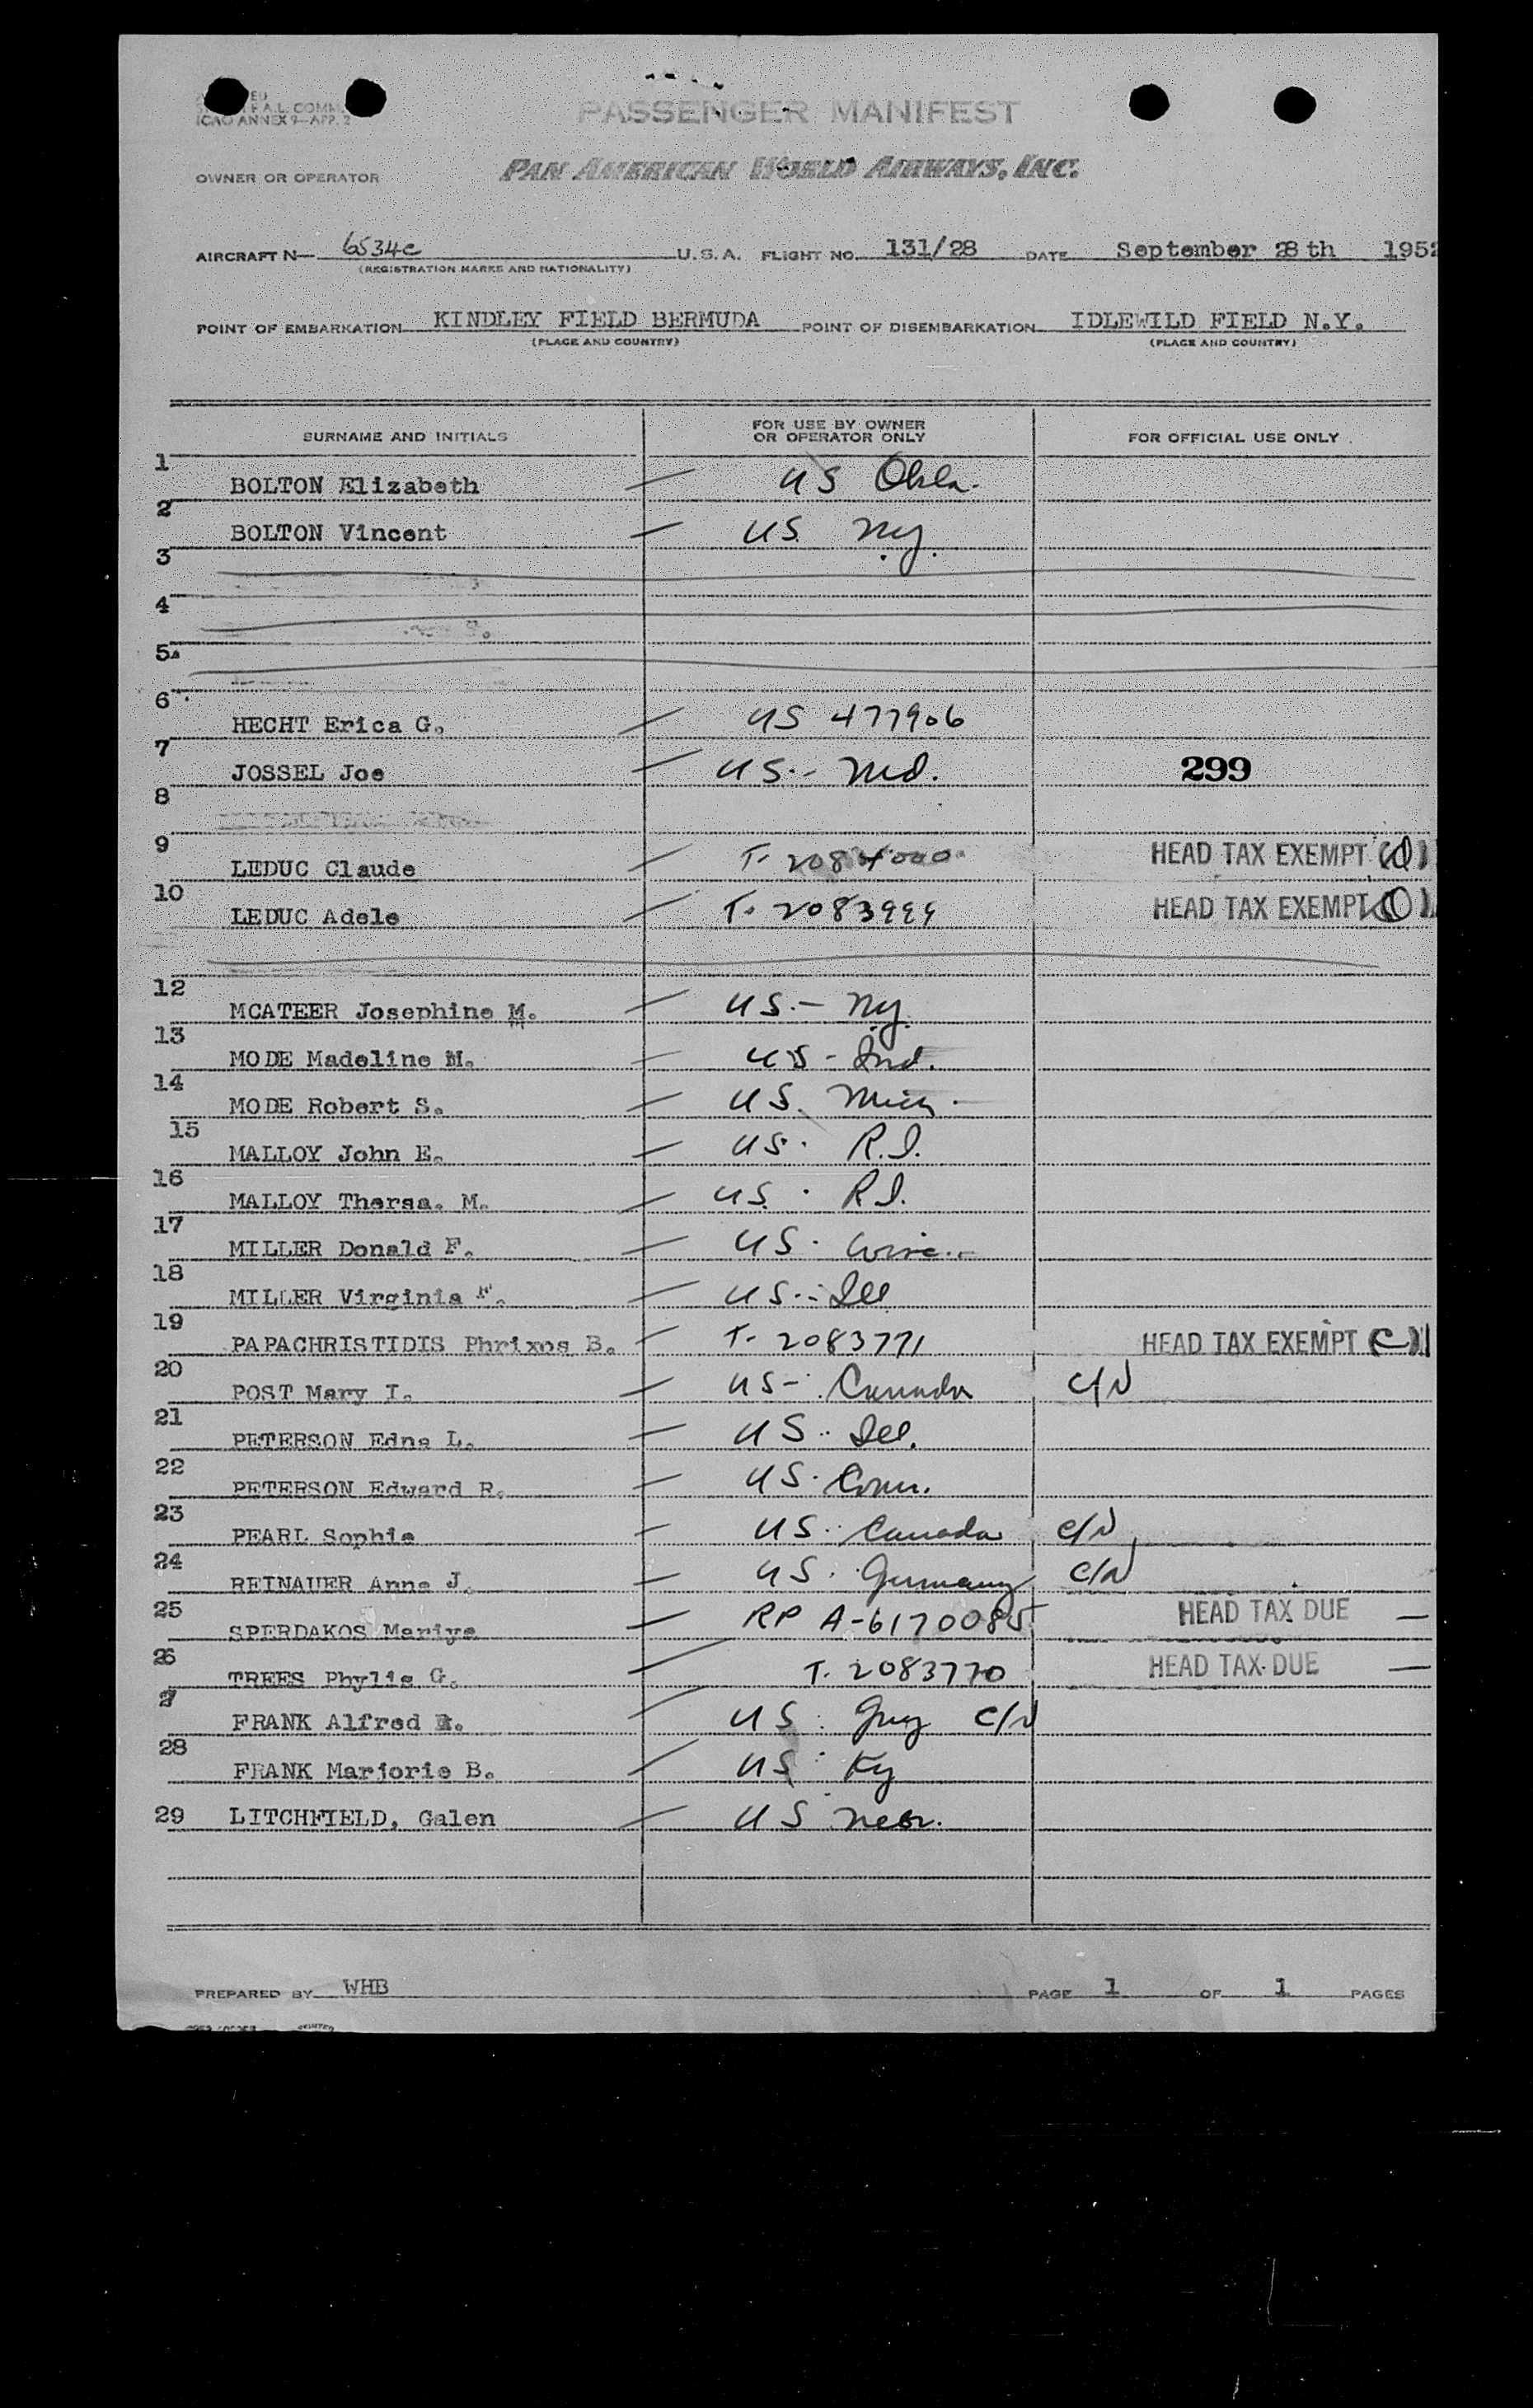 F.A.L. COMM
ICAO ANNEX 9-APP. 2
PASSENGER MANIFEST
OWNER OR OPERATOR PAN AMERICAN WORLD AIRWAYS, INC.
AIRCRAFT N— 6534C U.S.A. FLIGHT NO. 131/28 DATE September 28th 1952
(REGISTRATION MARKS AND NATIONALITY)
POINT OF EMBARKATION KINDLEY FIELD BERMUDA POINT OF DISEMBARKATION IDLEWILD FIELD N.Y.
(PLACE AND COUNTRY) (PLACE AND COUNTRY)
SURNAME AND INITIALS FOR USE BY OWNER OR OPERATOR ONLY FOR OFFICIAL USE ONLY
1 BOLTON Elizabeth — US Okla.
2 BOLTON Vincent — US. NY.
3
4
5
6 HECHT Erica G. — US 477906
7 JOSSEL Joe — US.- Md. 299
8
9 LEDUC Claude — T- 2084000 HEAD TAX EXEMPT
10 LEDUC Adele — T. 2083999 HEAD TAX EXEMPT
12 MCATEER Josephine M. — US.- NY.
13 MODE Madeline M. — US - Ind.
14 MODE Robert S. — US. Mich.
15 MALLOY John E. — US. R.I.
16 MALLOY Thersa. M. — US. R.I.
17 MILLER Donald F. — US. Wisc.
18 MILLER Virginia F. — US.- Ill
19 PAPACHRISTIDIS Phrixos B. — T- 2083771 HEAD TAX EXEMPT
20 POST Mary I. — US- Canada C/N
21 PETERSON Edna L. — US. Ill.
22 PETERSON Edward R. — US. Conn.
23 PEARL Sophie — US. Canada C/N
24 REINAUER Anna J. — US. Germany C/N
25 SPERDAKOS Mariya — RP A-6170085 HEAD TAX DUE —
26 TREES Phylis G. — T. 2083770 HEAD TAX DUE —
27 FRANK Alfred — US. Gny C/N
28 FRANK Marjorie B. — US. Ky
29 LITCHFIELD, Galen — US Nebr.
PREPARED BY WHB PAGE 1 OF 1 PAGES